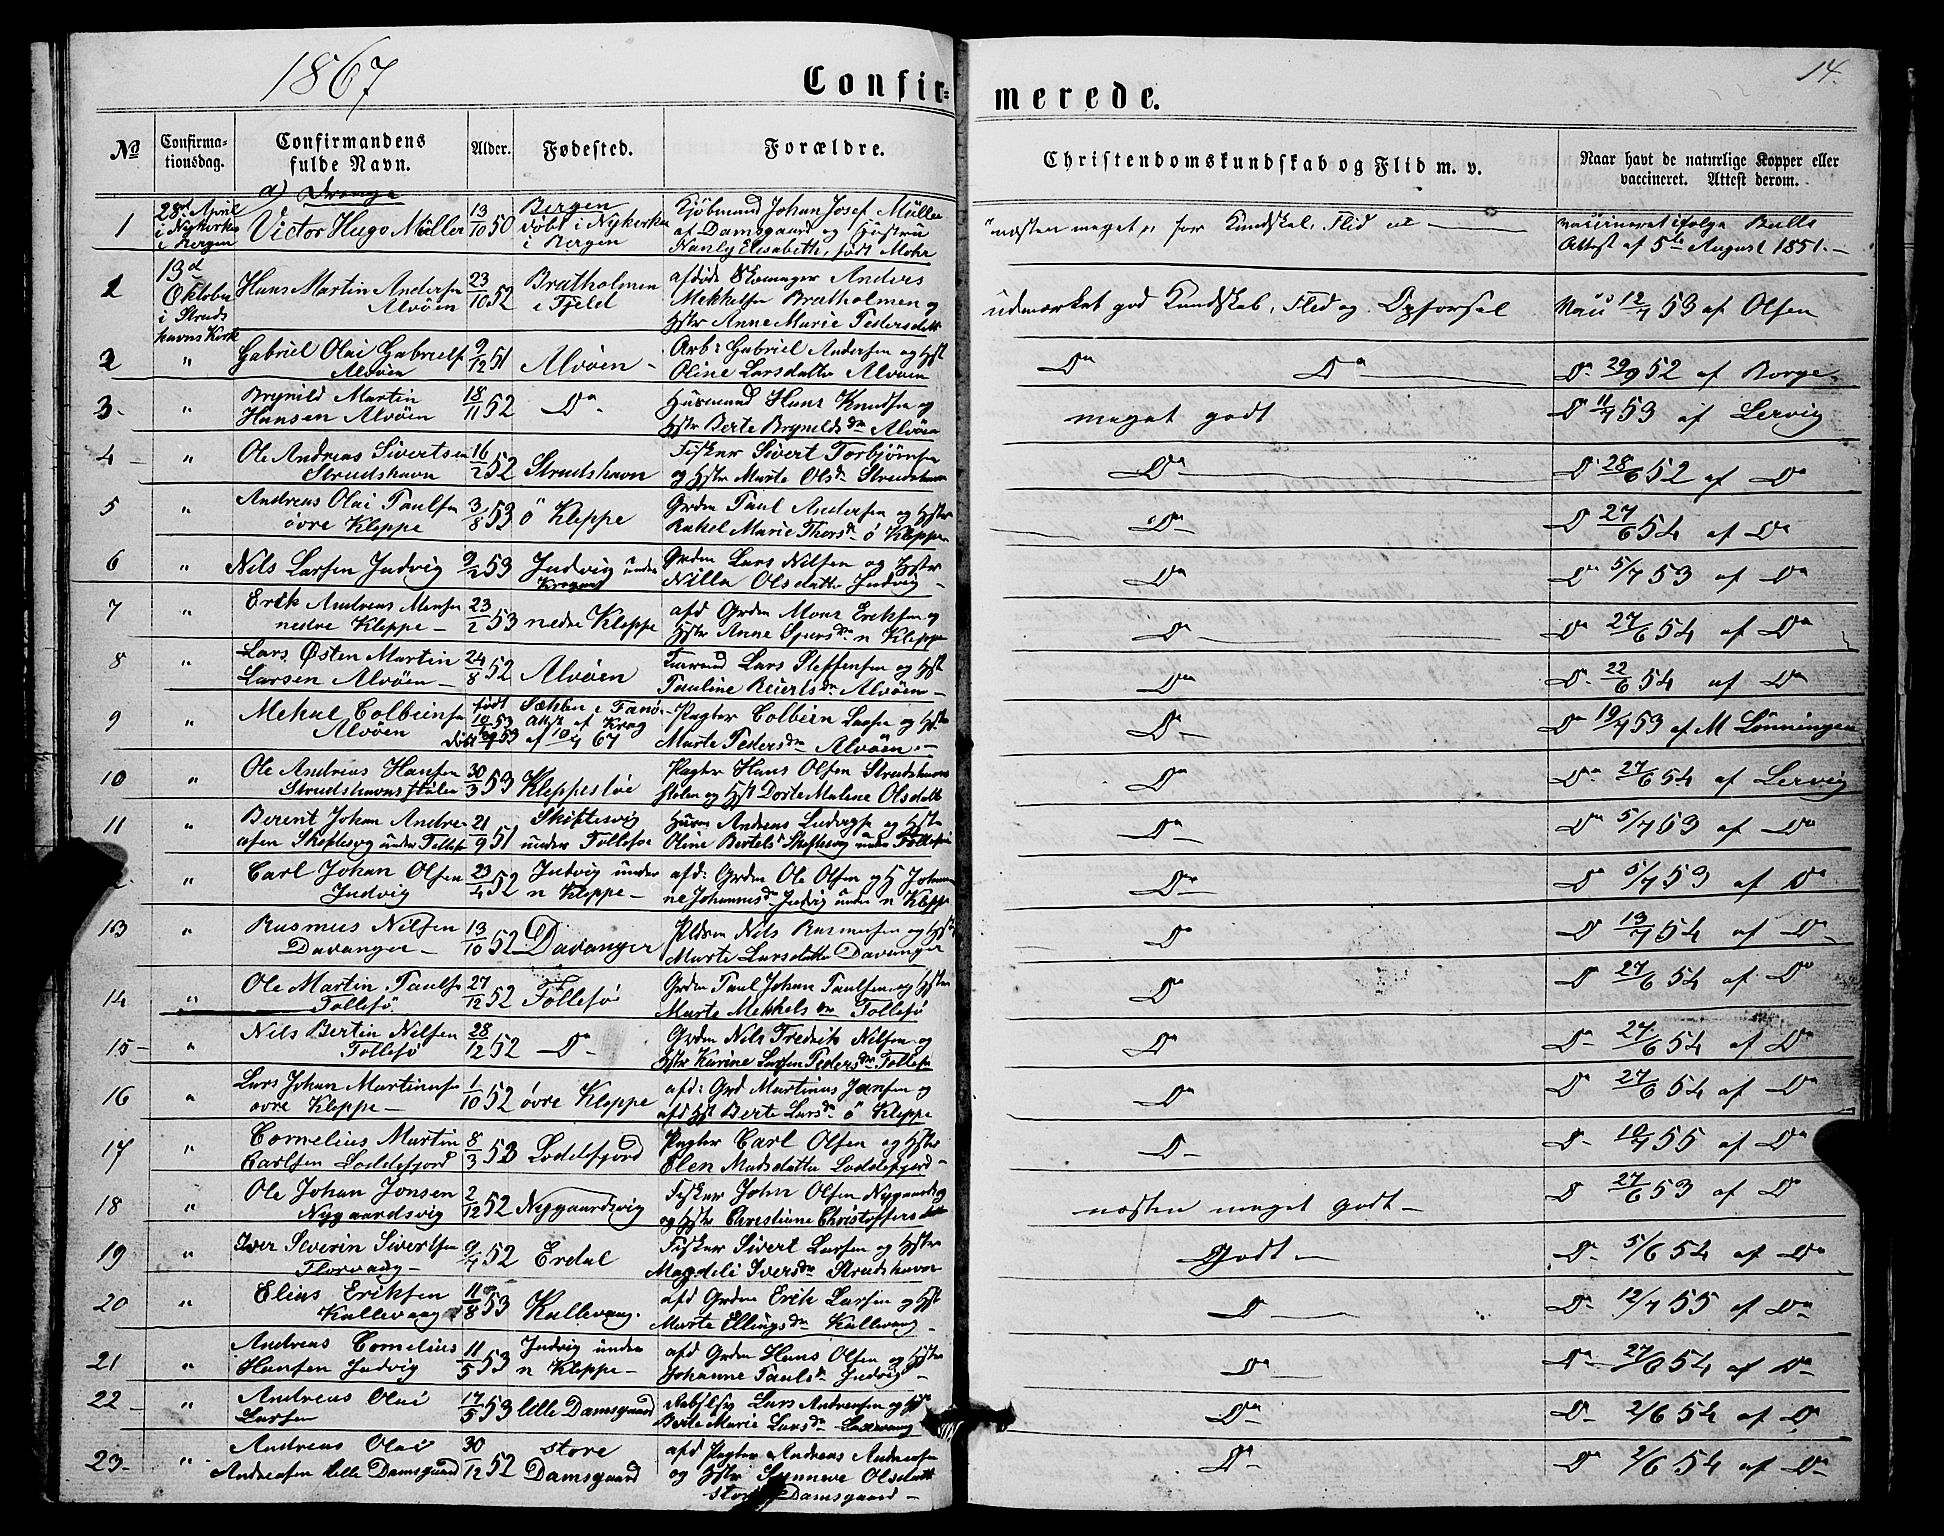 1867
Confir=
merede.
14.
No
Confirma-
tionsdag.
Confirmandens
fulde Navn.
Alder.
Fødested.
Forældre.
Christendomskundskab og Flid m. v.
Naar havt de naturlige Kopper eller
vaccineret. Attest derom.
a) Drenge
1 28de April i Nykirken i Bergen Victor Hugo Müller 13/10 50 Bergen døbt i Nykirken i Bergen
Kjøbmand Johan Josef Müller
af Damsgaard og Hustru
Elisabeth, født Mohr
"næsten meget" for Kundskab, Flid
vaccineret ifølge Bulls
Attest af 5te August 1851.
1 13d Oktober i Strudshavns Kirke Hans Martin Andersen Alvøen 23/10 52 Bratholmen i Fjeld
afdøde Skomager Anders
Mekkelsen Bratholmen og
Hstr Anne Marie Pedersdatt
udmærket god Kundskab, Flid og Opførsel
Vacc 12/7 53 af Olsen
2 " Gabriel Olai Gabrielsen Alvøen 9/12 51 Alvøen
Arb: Gabriel Andersen og Hst
Oline Larsdatter Alvøen
Do Do
Do 29/9 52 af Borge
3 " Brynild Martin
Hansen Alvøen 18/11 52 Do
Husmand Hans Knudsen og
Hstr Berte Brynildsdr Alvøen
meget godt
Do 11/7 53 af Lervig
4 " Ole Andreas Sivertsen
Strudshavn 16/2 52 Strudshavn
Fisker Sivert Torbjørnsen
og Hstr Marte Olsdr Strudshavn
Do
Do 28/6 52 af Do
5 " Andreas Olai Paulsen
øvre Kleppe 3/8 53 ø Kleppe
Grdm Paul Andersen og Hstr
Rakel Marie Thorsdr ø Kleppe
Do
Do 27/6 54 af Do
6 " Nils Larsen Indvig 9/2 53 Indvig under
Grdm Lars Nilsen og Hstr
Nilla Olsdatter Indvig
Do
Do 5/7 53 af Do
7 " Erik Andreas Monsen
nedre Kleppe 23/2 53 nedre Kleppe
afd Grdm Mons Eriksen og
Hstr Anne Sjursdr n Kleppe
Do
Do 27/6 54 af Do
8 " Lars Østen Martin
Larsen Alvøen 24/8 52 Alvøen
Lars Steffensen og Hst
Pauline Reiertsdr Alvøen
Do
Do 22/6 54 af Do
9 " Mekal Colbeinsen
Alvøen født 10/ 53 Sækken i Fanø Attst af Krag af 10/4 67
Pagter Colbein Larsen og Hstr
Marte Pedersdr Alvøen
Do
Do 19/7 53 af M Lønningen
10 " Ole Andreas Hansen
Strudshavnsstølen 30/3 53 Kleppestøe
Pagter Hans Olsen Strudshavns
stølen og Hst Dorte Malene Olsdatt
Do
Do 27/6 54 af Lervig
11 " Berent Johan Andre-
asen Skiftesvig under Follesø 21/9 51 Skiftesvig
under Follesø
Husm Andreas Ludvigsen og Hstr
Oline Bertels Skiftesvig under Follesø
Do
Do 5/7 53 af Do
" Carl Johan Olsen
Indvig 23/4 52 Indvig under
n Kleppe
afd: Grdm Ole Olsen og H Johan
ne Johannesdr Indvig under n Kleppe
Do
Do 5/7 53 af Do
13 " Rasmus Nilsen
Davanger 13/10 52 Davanger
Nils Rasmusen og Hstr
Marte Larsdatter Davanger
Do
Do 13/7 54 af Do
14 " Ole Martin Paulsen
Follesø 27/12 52 Follesø
Grdm Paul Johan Paulsen og Hstr
Marte Mekkelsdr Follesø
Do
Do 27/6 54 af Do
15 " Nils Bertin Nilsen
Follesø 28/12 52 Do
Grdm Nils Fredrik Nilsen og
Hstr Karine Larsen Pedersdr Follesø
Do
Do 27/6 54 af Do
16 " Lars Johan Martinusen
øvre Kleppe 1/10 52 øvre Kleppe
afd: Grd Martinus Jansen og
afd Hst Berte Larsdr ø Kleppe
Do
Do 27/6 54 af Do
17 " Cornelius Martin
Carlsen Loddefjord 8/3 53 Lodefjord
Pagter Carl Olsen og Hstr
Elen Madsdatter Loddefjord
Do
Do 10/7 55 af Do
18 " Ole Johan Jonsen
Nygaardsvig 2/12 52 Nygaardsvig
Fisker John Olsen Nygaardsvig
og Hstr Christiane Christoffersdatter
næsten meget godt
Do 27/6 53 af Do
19 " Iver Severin Sivertsen
Florvaag 9/7 52 Erdal
Fisker Sivert Larsen og Hstr
Magdeli Iversdr Strudshavn
Godt
Do 5/6 54 af Do
20 " Elias Eriksen
Kallevaag 11/8 53 Kallevaag
afd Grdm Erik Larsen og Hst
Marte Ellingsdr Kallevaag
Do
Do 12/7 55 af Do
21 " Andreas Cornelius
Hansen Indvig 11/5 53 Indvig under
n Kleppe
afd Grdm Hans Olsen og Hstr
Johanne Paulsdr Indvig
Do
Do 27/6 54 af Do
22 " Andreas Olai
Larsen 17/5 53 lille Damsgaard
Lars Andreasen og Hst
Berte Marie Larsdr
Do
Do 2/6 54 af Do
23 " Andreas Olai
Andreasen lille Damsgaard 30/12 52 store
Damsgaard
afd Pagter Andreas Andersen
og Hstr Synneve Olsdatt
store Damsgaard
Do
Do 2/6 54 af Do